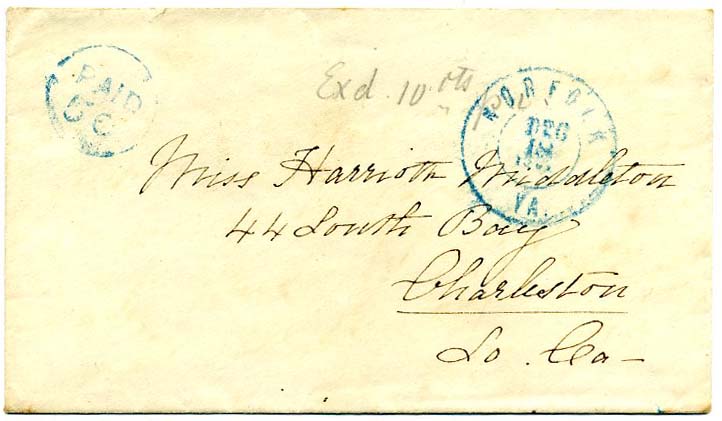 PAID
Exd. 10 cts
NORFOLK
DEC
VA.
Miss Harriott Middleton
44 South Bay
Charleston
So. Ca-